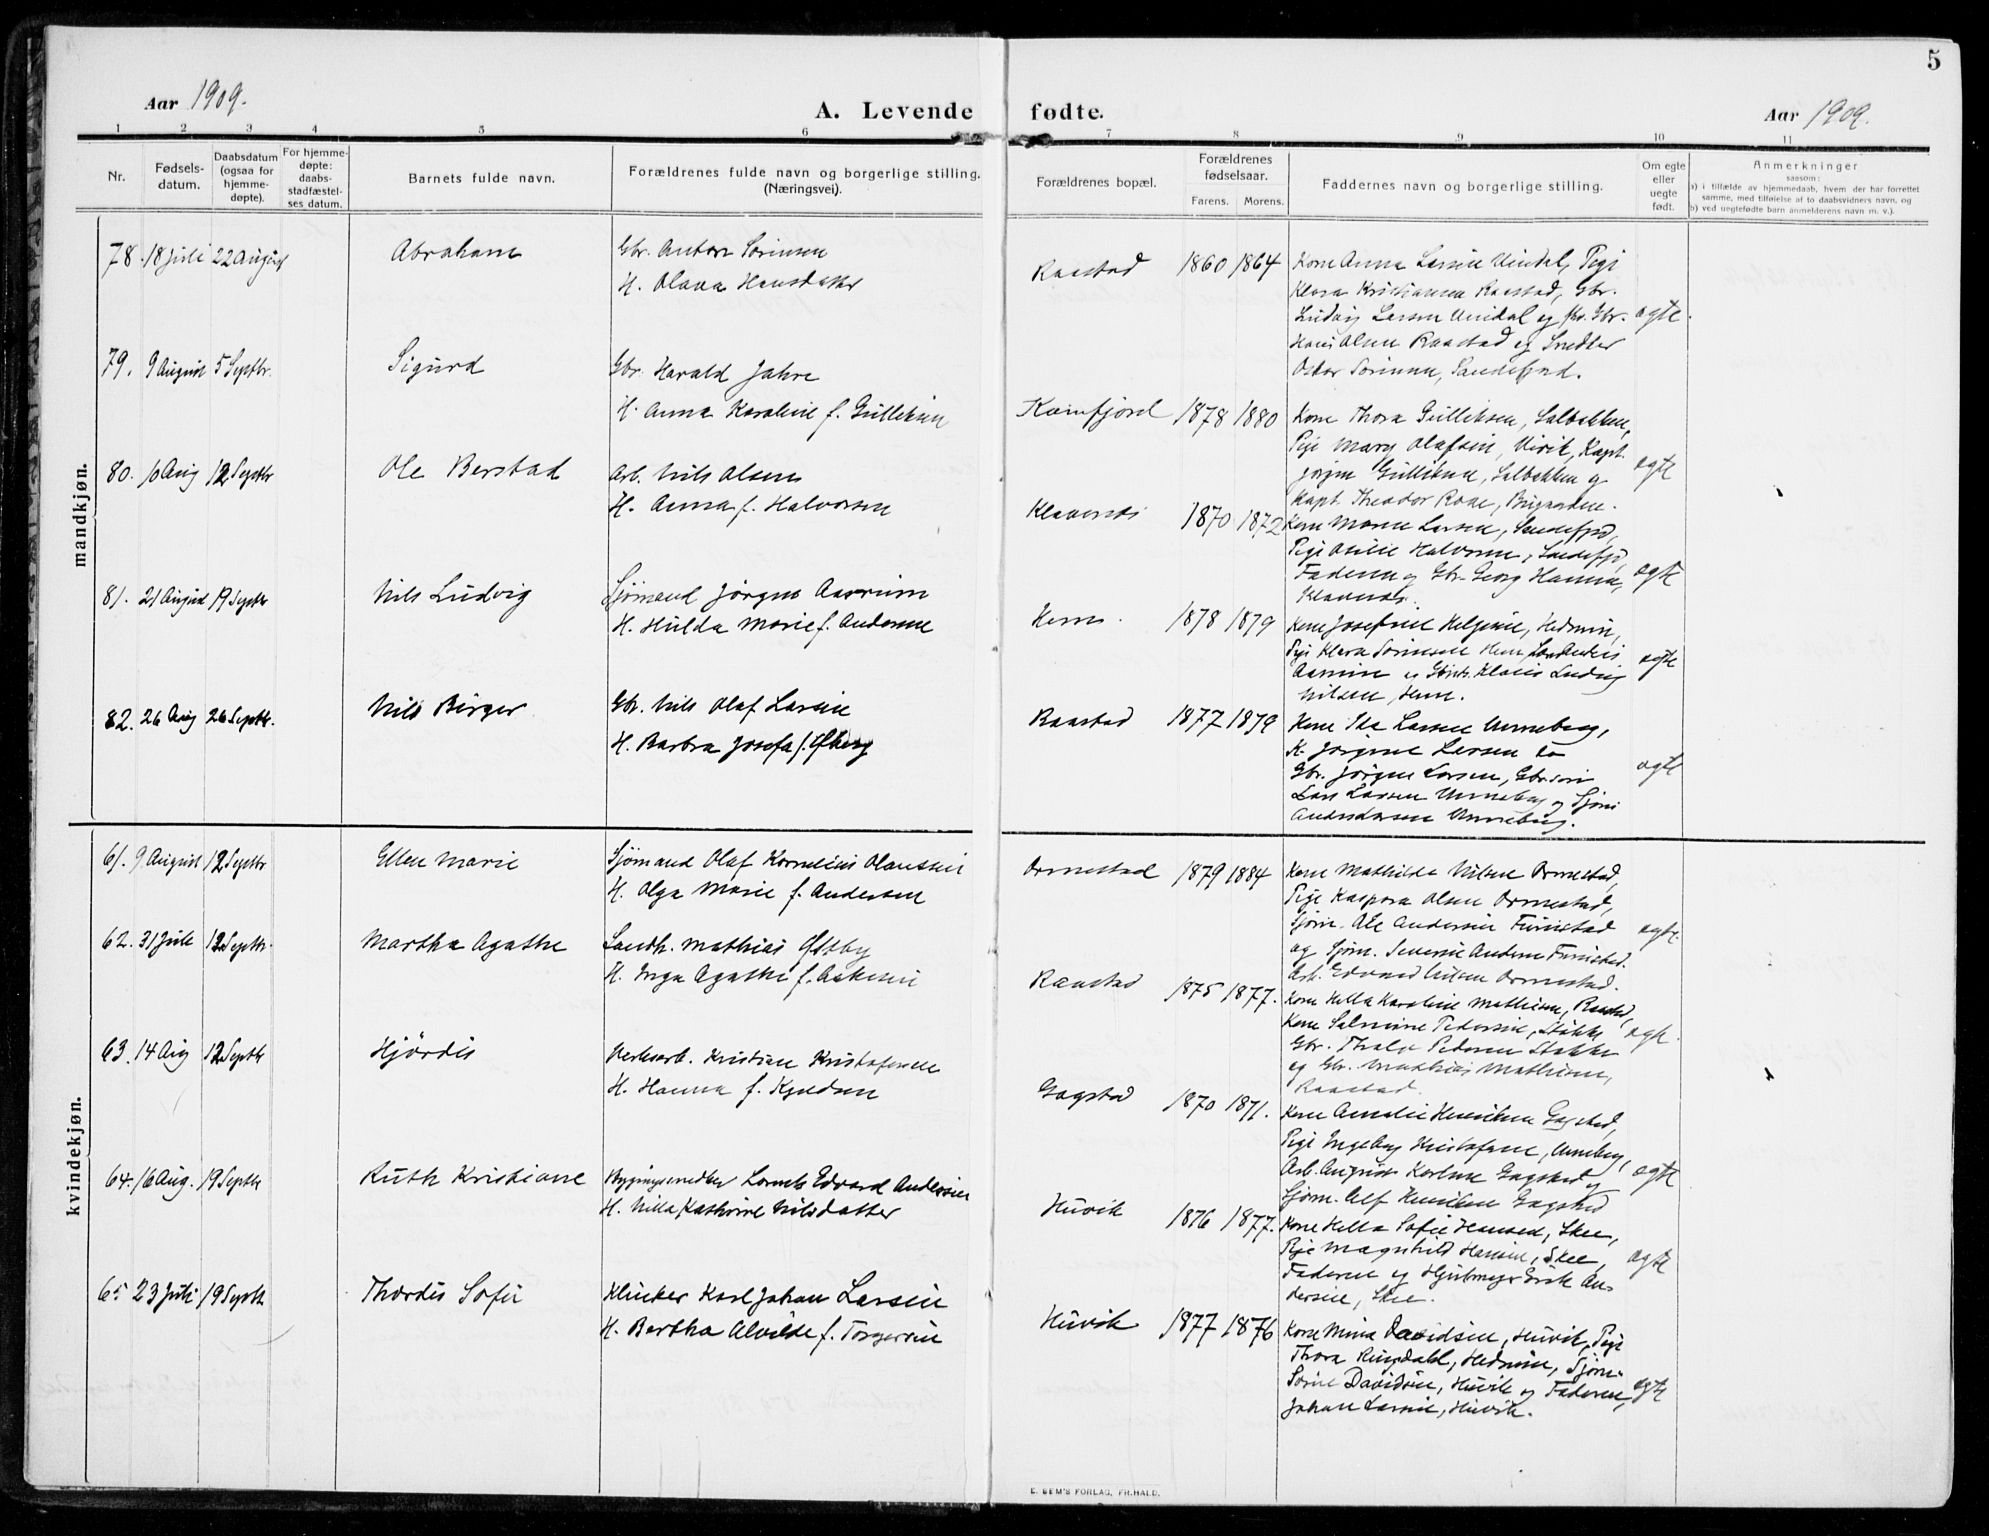 5
Aar 1909.
A. Levende fødte.
Aar 1909.
1 2 3 4 5 6 7 8 9 10 11
Nr.
Fødsels-
datum.
Daabsdatum
(ogsaa for
hjemme-
døpte).
For hjemme-
døpte:
daabs-
stadfæstel-
ses datum.
Barnets fulde navn.
Forældrenes fulde navn og borgerlige stilling.
(Næringsvei).
Forældrenes bopæl.
Forældrenes
fødselsaar.
Farens. Morens.
Faddernes navn og borgerlige stilling.
Om egte
eller
uegte
født.
Anmerkninger
saasom:
a) i tilfælde av hjemmedaab, hvem der har forrettet
samme, med tilføielse af to daabsvidners navn, og
b) ved uegtefødte barn anmelderens navn m. v.).
mandkjøn.
78. 18 Juli 22 August Abraham
Gbr. Anton Sørensen
H. Olava Hansdatter
Raastad 1860 1864
Kone Anna Larsen Unidal, Pige
Klara Kristiansen Raastad, Gbr.
Ludvig Larsen Unidal og Gbr.
Hans Olsen Raastad og Snedker
Oskar Sørensen, Sandefjord.
egte.
79. 9 August 5 Septbr. Sigurd
Gbr. Harald Jahre
H. Anna Karoline f. Gulliksen
Kamfjord 1878 1880
Kone Thora Gulliksen, Solbakken,
Pige Mary Olafsen, Virik, Kapt.
Jørgen Gulliksen, Solbakken og
Kapt. Theodor Roae,
egte
80. 10 Aug 12 Septbr Ole Berstad
Arb. Nils Olsen
H. Anna f. Halvorsen
Klavenæs 1870 1872
Kone Maren Larsen, Sandefjd,
Pige Otilie Halvorsen, Sandefjd,
Faderen og Gbr. Georg Hansen,
Klavenæs.
egte
81. 21 August 19 Septbr Nils Ludvig
Sjømand Jørgen Aasrum
H. Hulda Marie f. Andersen
Hem. 1878 1879
Kone Josefine Helgesen, Hedrum,
Pige Klara Sørensen Hem,
Aasrum og Klaus Ludvig
Nilsen, Hem.
egte
82. 26 Aug 26 Septbr. Nils Birger
Gbr. Nils Olaf Larsen
H. Barbra Josefa f. Øberg
Raastad 1877 1879
Kone Ida Larsen Unneberg,
K. Jørgine Larsen do
Gbr. Jørgen Larsen, Gbrsøn
Lars Larsen Unneberg og Sjøm.
Unneberg.
egte
kvindekjøn.
61. 9 August 12 Septbr Ellen Marie
Sjømand Olaf Kornelius Olaussen
H. Olga Marie f. Andersen
Ormestad 1879 1884
Kone Mathilde Nilsen Ormestad,
Pige Kaspara Olsen Ormestad,
Sjøm. Ole Andersen Furustad
og Sjøm. Severin Andersen Furustad.
Arb. Edvard Nilsen Ormestad.
egte.
62. 31 Juli 12 Septbr. Martha Agathe
Landh. Mathias Østby
H. Inga Agathe f. Askersen
Raastad 1875 1877.
Kone Hella Karoline Mathisen, Raastad,
Kone Salmine Pedersen, Stakke
Gbr. Thalo Pedersen Stakke
og Gbr. Mathias Mathisen,
Raastad.
egte.
63. 14 Aug 12 Septbr Hjørdis
Verksarb. Kristian Kristofersen
H. Hanna f. Knudsen
Gogstad 1870 1871.
Kone Amalie Henriksen Gogstad,
Pige Ingeborg Kristofersen, Unneberg,
Arb. August Karlsen Gogstad og
Sjøm. Alf Henriksen Gogstad
egte
64. 16 Aug. 19 Septbr Ruth Kristiane
Bygningssnedker Lornts Edvard Andersen
H. Nilla Kathrine Nilsdatter
Huvik 1876 1877.
Kone Hella Sofie Hansen, Skee,
Pige Magnhild Hansen, Skee,
Faderen og Hjulmager Erik An-
dersen, Skee.
egte
65 23 Juli 19 Septbr Thordis Sofie
Klinker Karl Johan Larsen
H. Bertha Alvilde f. Torgersen
Huvik 1877 1876
Kone Mina Davidsen, Huvik, Pige
Thora Ringdahl, Hedrum, Sjøm.
Søren Davidsen, Huvik og Faderen,
Johan Larsen, Huvik.
egte
E. SEM'S FORLAG, FR.HALD.